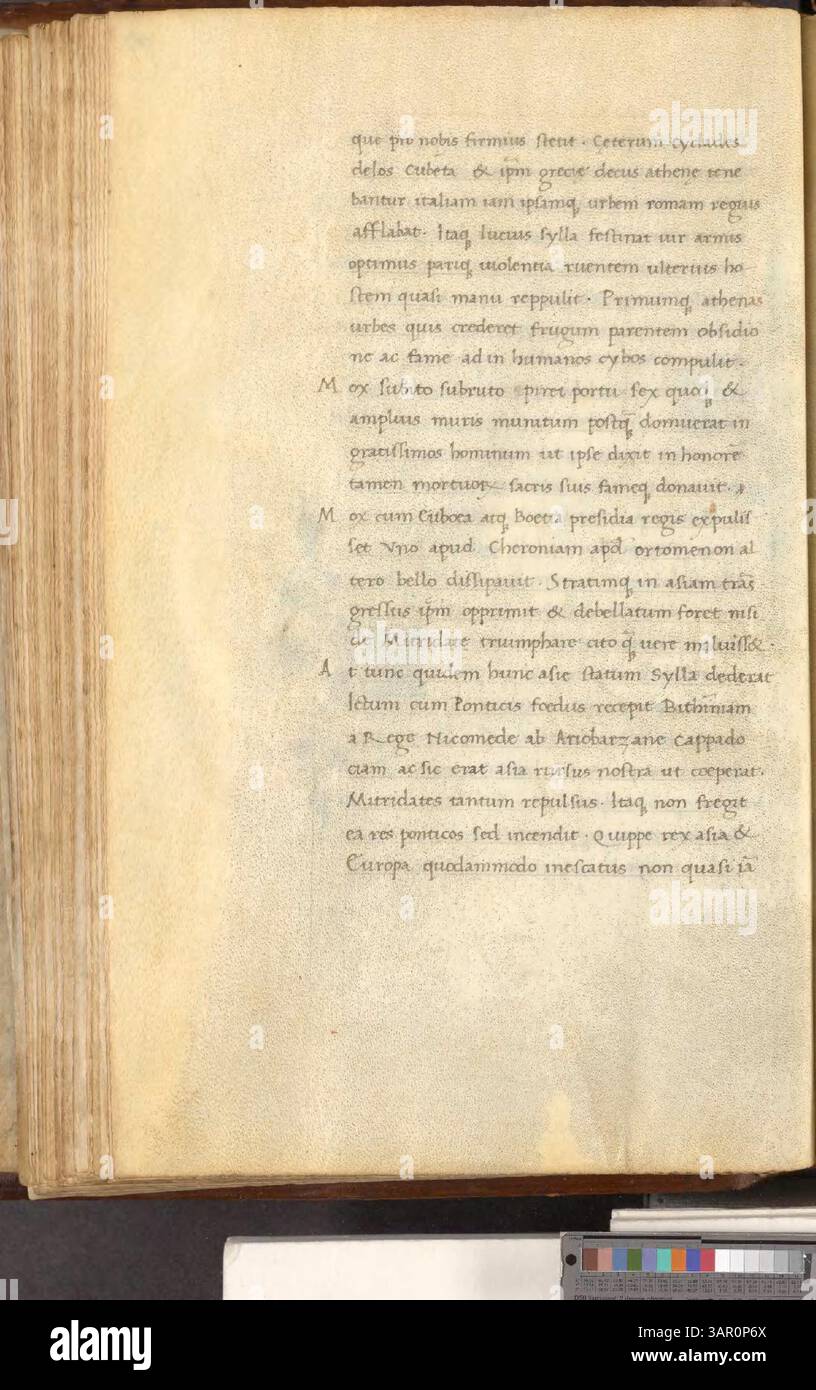 que pro nobis firmius stetit · Ceterum cyclades
delos Cubeta & ip̄m grecie decus athenę tene
bantur italiam iam ipsamq; urbem romam regius
afflabat · Itaq; lucius sylla festinat uir armis
optimus pariq; uiolentia ruentem ulterius ho
stem quasi manu reppulit · Primumq; athenas
urbes quis crederet frugum parentem obsidio
ne ac fame ad in humanos cybos compulit ·
Mox subito subruto pirei portu sex quoq; &
amplius muris munitum postq̄ domuerat in
gratissimos hominum ut ipse dixit in honorē
tamen mortuoꝝ sacris suis fameq; donauit ·
Mox cum Euboea atq; Boetia presidia regis expulis
set Vno apud Cheroniam apd̄ ortomenon al
tero bello dissipauit · Stratimq; in asiam trās
gressus ip̄m opprimit & debellatum foret nisi
de Mitridate triumphare cito q̄ uere maluiss& ·
At tunc quidem hunc asie statum Sylla dederat
Ictum cum Ponticis foedus recepit Bithiniam
a Rege Nicomede ab Ariobarzane Cappado
ciam ac sic erat asia rursus nostra ut coeperat ·
Mitridates tantum repulsus · Itaq; non fregit
ea res ponticos sed incendit · Quippe rex asia &
Europa quodammodo inescatus non quasi iā
alamy
a
alamy
alamy
Image ID: 3AR0P6X
www.alamy.com